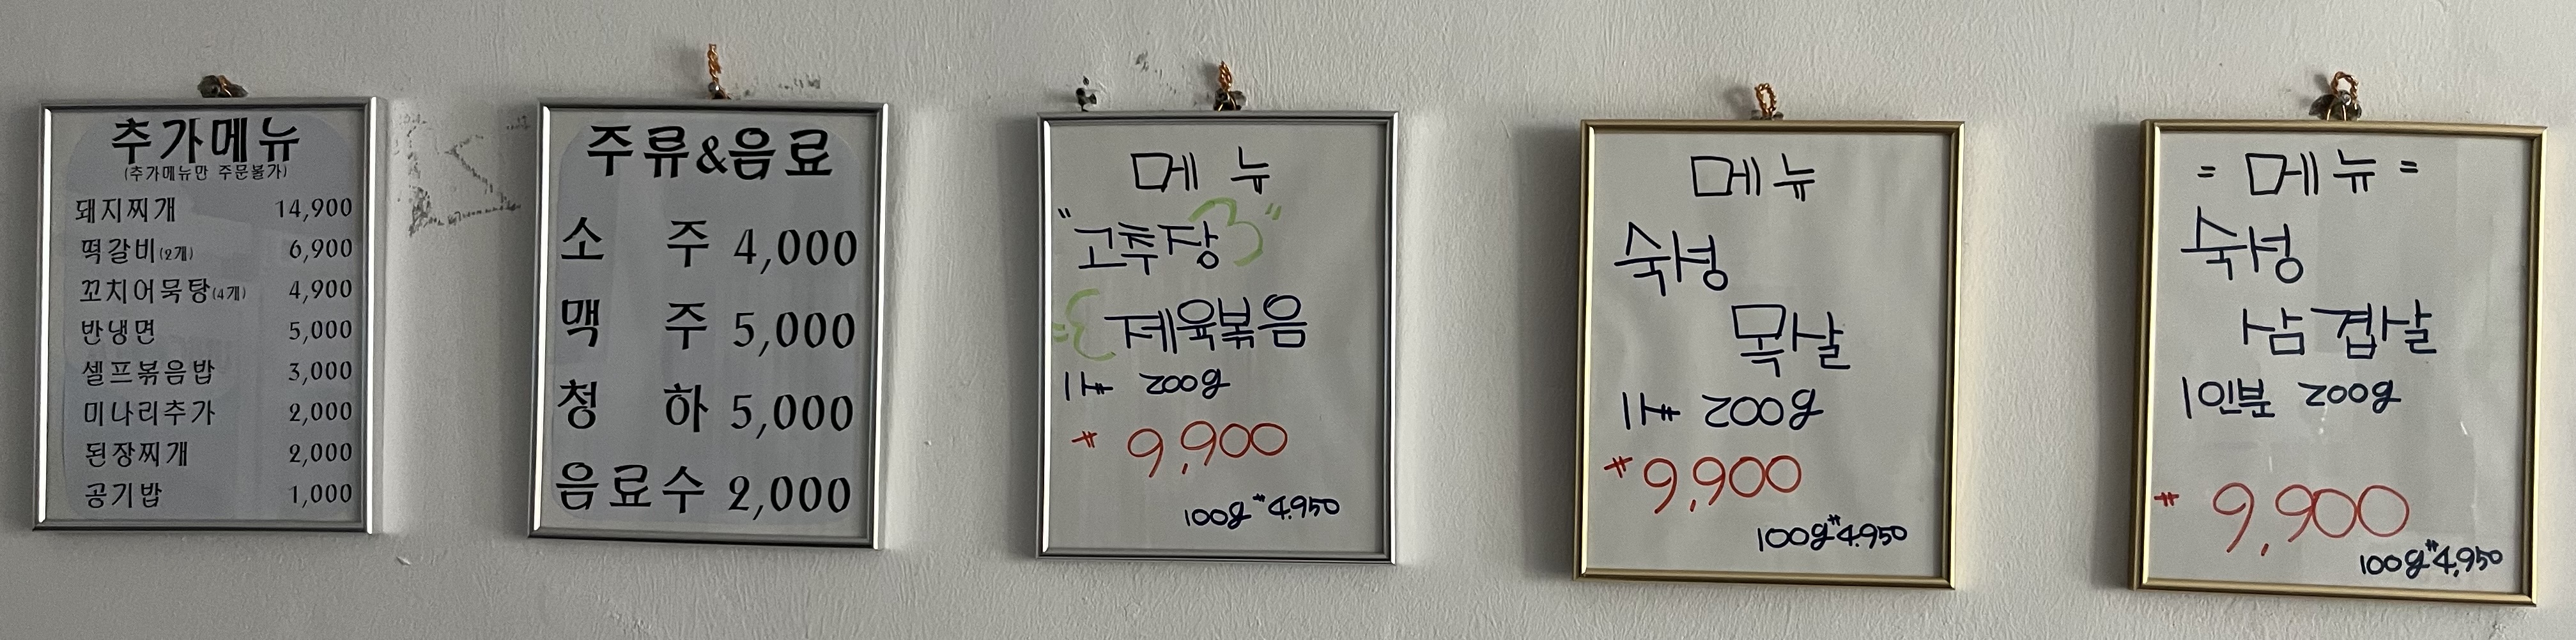 추가메뉴
(추가메뉴만 주문불가)
돼지찌개 14,900
떡갈비(2개) 6,900
꼬치어묵탕(4개) 4,900
반냉면 5,000
셀프볶음밥 3,000
미나리추가 2,000
된장찌개 2,000
공기밥 1,000
주류&음료
소 주 4,000
맥 주 5,000
청 하 5,000
음료수 2,000
메 뉴
"고추장"
제육볶음
1人 200g
₩ 9,900
100g ₩4,950
메뉴
숙성
목살
1人 200g
₩9,900
100g ₩4,950
= 메뉴 =
숙성
삼겹살
1인분 200g
₩ 9,900
100g ₩4,950